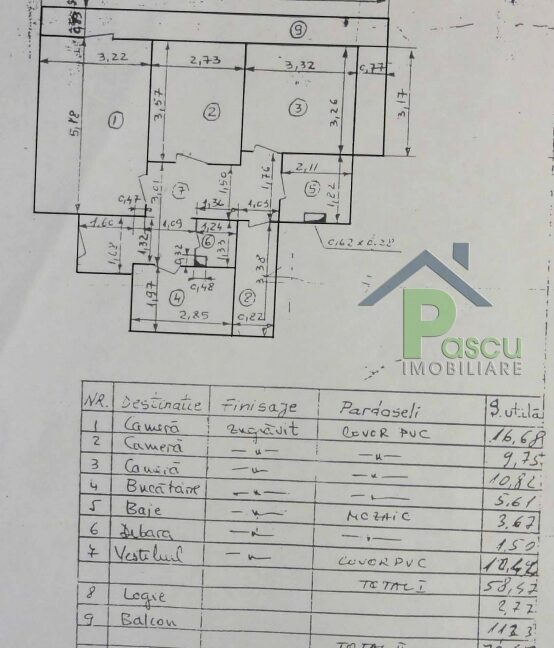 9
3,22
2,73
3,32
0,77
5,18
3,57
3,26
3,17
1
2
3
2,11
1,76
1,50
1,22
5
7
3,01
0,47
1,36
1,05
1,60
1,09
1,24
1,68
1,32
6
1,33
0,32
0,62 x 0.22
0,48
3,38
1,97
4
2
2,85
0,82
Pascu
IMOBILIARE
NR. Destinatie Finisaje Pardoseli S.utilă
1 Cameră zugrăvit COVOR PVC 16,68
2 Cameră —"— —"— 9,75
3 Cameră —"— —"— 10,82
4 Bucătărie —"— —"— 5,61
5 Baie —"— MOZAIC 3,67
6 Debara —"— —"— 1,50
7 Vestibul —"— COVOR PVC 10,42
TOTAL I 58,47
8 Logie 2,77
9 Balcon 11,23
TOTAL